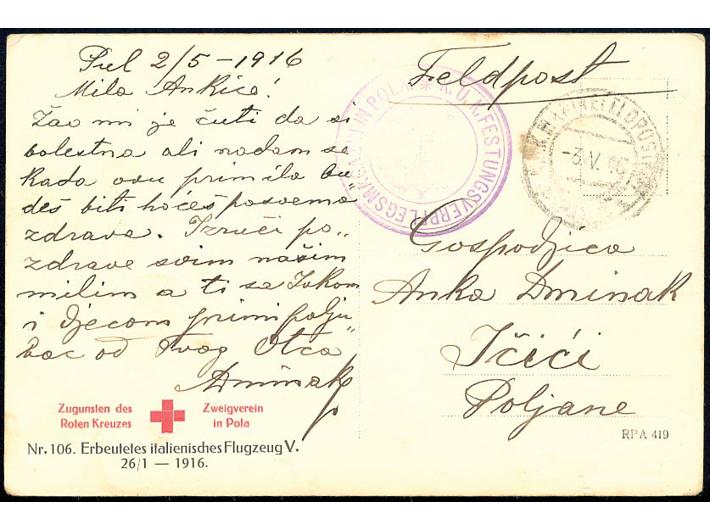 Pul 2/5 – 1916
Mila Ankica!
Žao mi je čuti da si
bolestna ali nadam se
kada ovu primila bu"
deš biti hoćeš posvema
zdrava. Izruči po„
zdrave svim našim
milim a ti sa
i djecom primi polju"
bac od Tvog Otca
Dminak
Feldpost
K. U. K. FESTUNGSVERPFLEGSMAGAZIN IN POLA *
-3.V.16
Gospodjica
Anka Dminak
Ičići
Poljane
Zugunsten des Roten Kreuzes
Zweigverein in Pola
Nr. 106. Erbeutetes italienisches Flugzeug V.
26/1 — 1916.
RPA 419